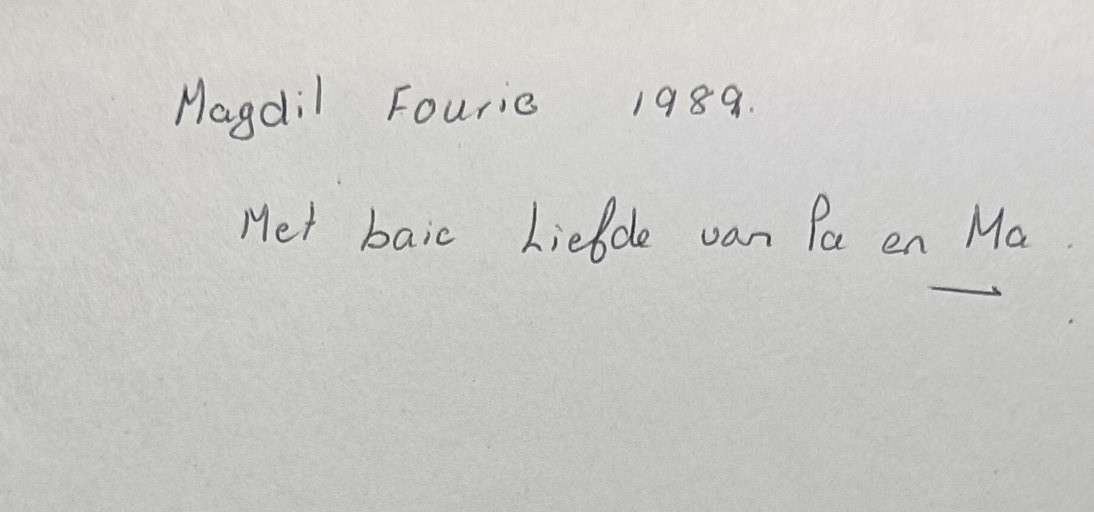 Magdil Fourie 1989.
Met baie Liefde van Pa en Ma.